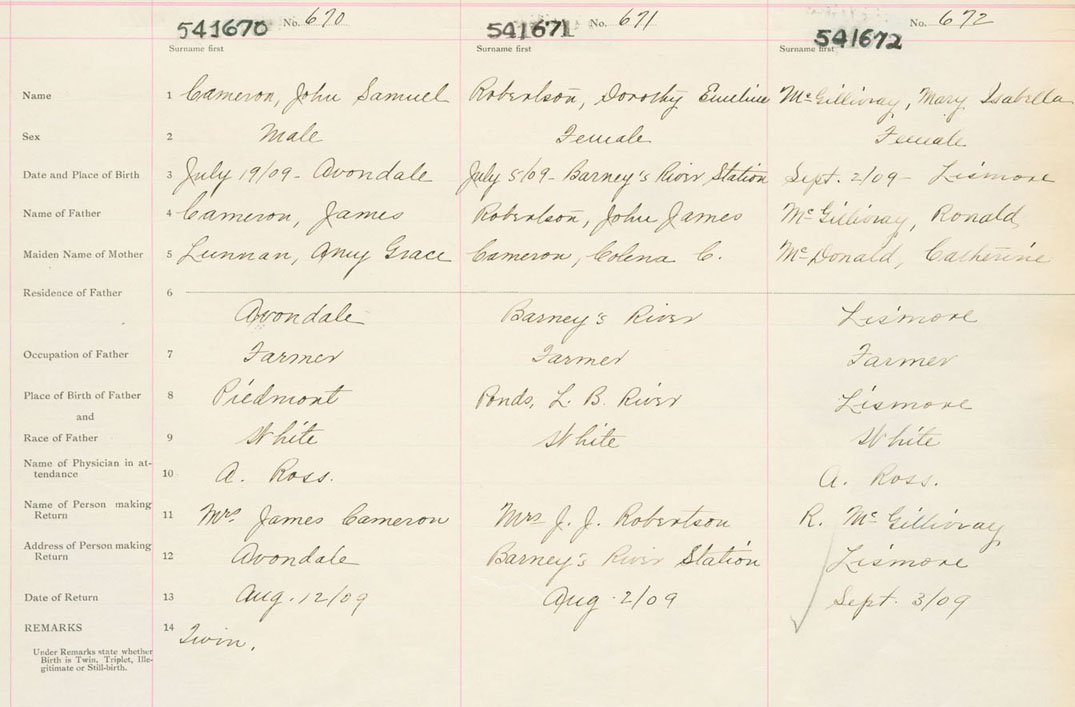 541670 No. 670 541671 No. 671 541672 No. 672
Surname first Surname first Surname first
Name 1 Cameron, John Samuel Robertson, Dorothy Emeline McGillivray, Mary Isabella
Sex 2 Male Female Female
Date and Place of Birth 3 July 19/09 - Avondale July 5/09 - Barney's River Station Sept. 2/09 - Lismore
Name of Father 4 Cameron, James Robertson, John James McGillivray, Ronald
Maiden Name of Mother 5 Lunnan, Amy Grace Cameron, Colena C. McDonald, Catherine
Residence of Father 6
Avondale Barney's River Lismore
Occupation of Father 7 Farmer Farmer Farmer
Place of Birth of Father 8 Piedmont Ponds, L. B. River Lismore
and
Race of Father 9 White White White
Name of Physician in at-
tendance 10 A. Ross. A. Ross.
Name of Person making
Return 11 Mrs James Cameron Mrs J. J. Robertson R. McGillivray
Address of Person making
Return 12 Avondale Barney's River Station Lismore
Date of Return 13 Aug. 12/09 Aug. 2/09 Sept. 3/09
REMARKS 14 Twin.
Under Remarks state whether
Birth is Twin, Triplet, Ille-
gitimate or Still-birth.